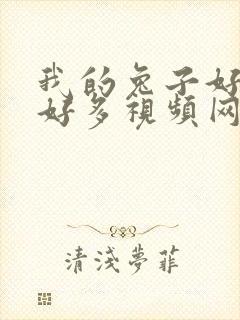 我的兔子好
好多視頻网
清淺夢菲